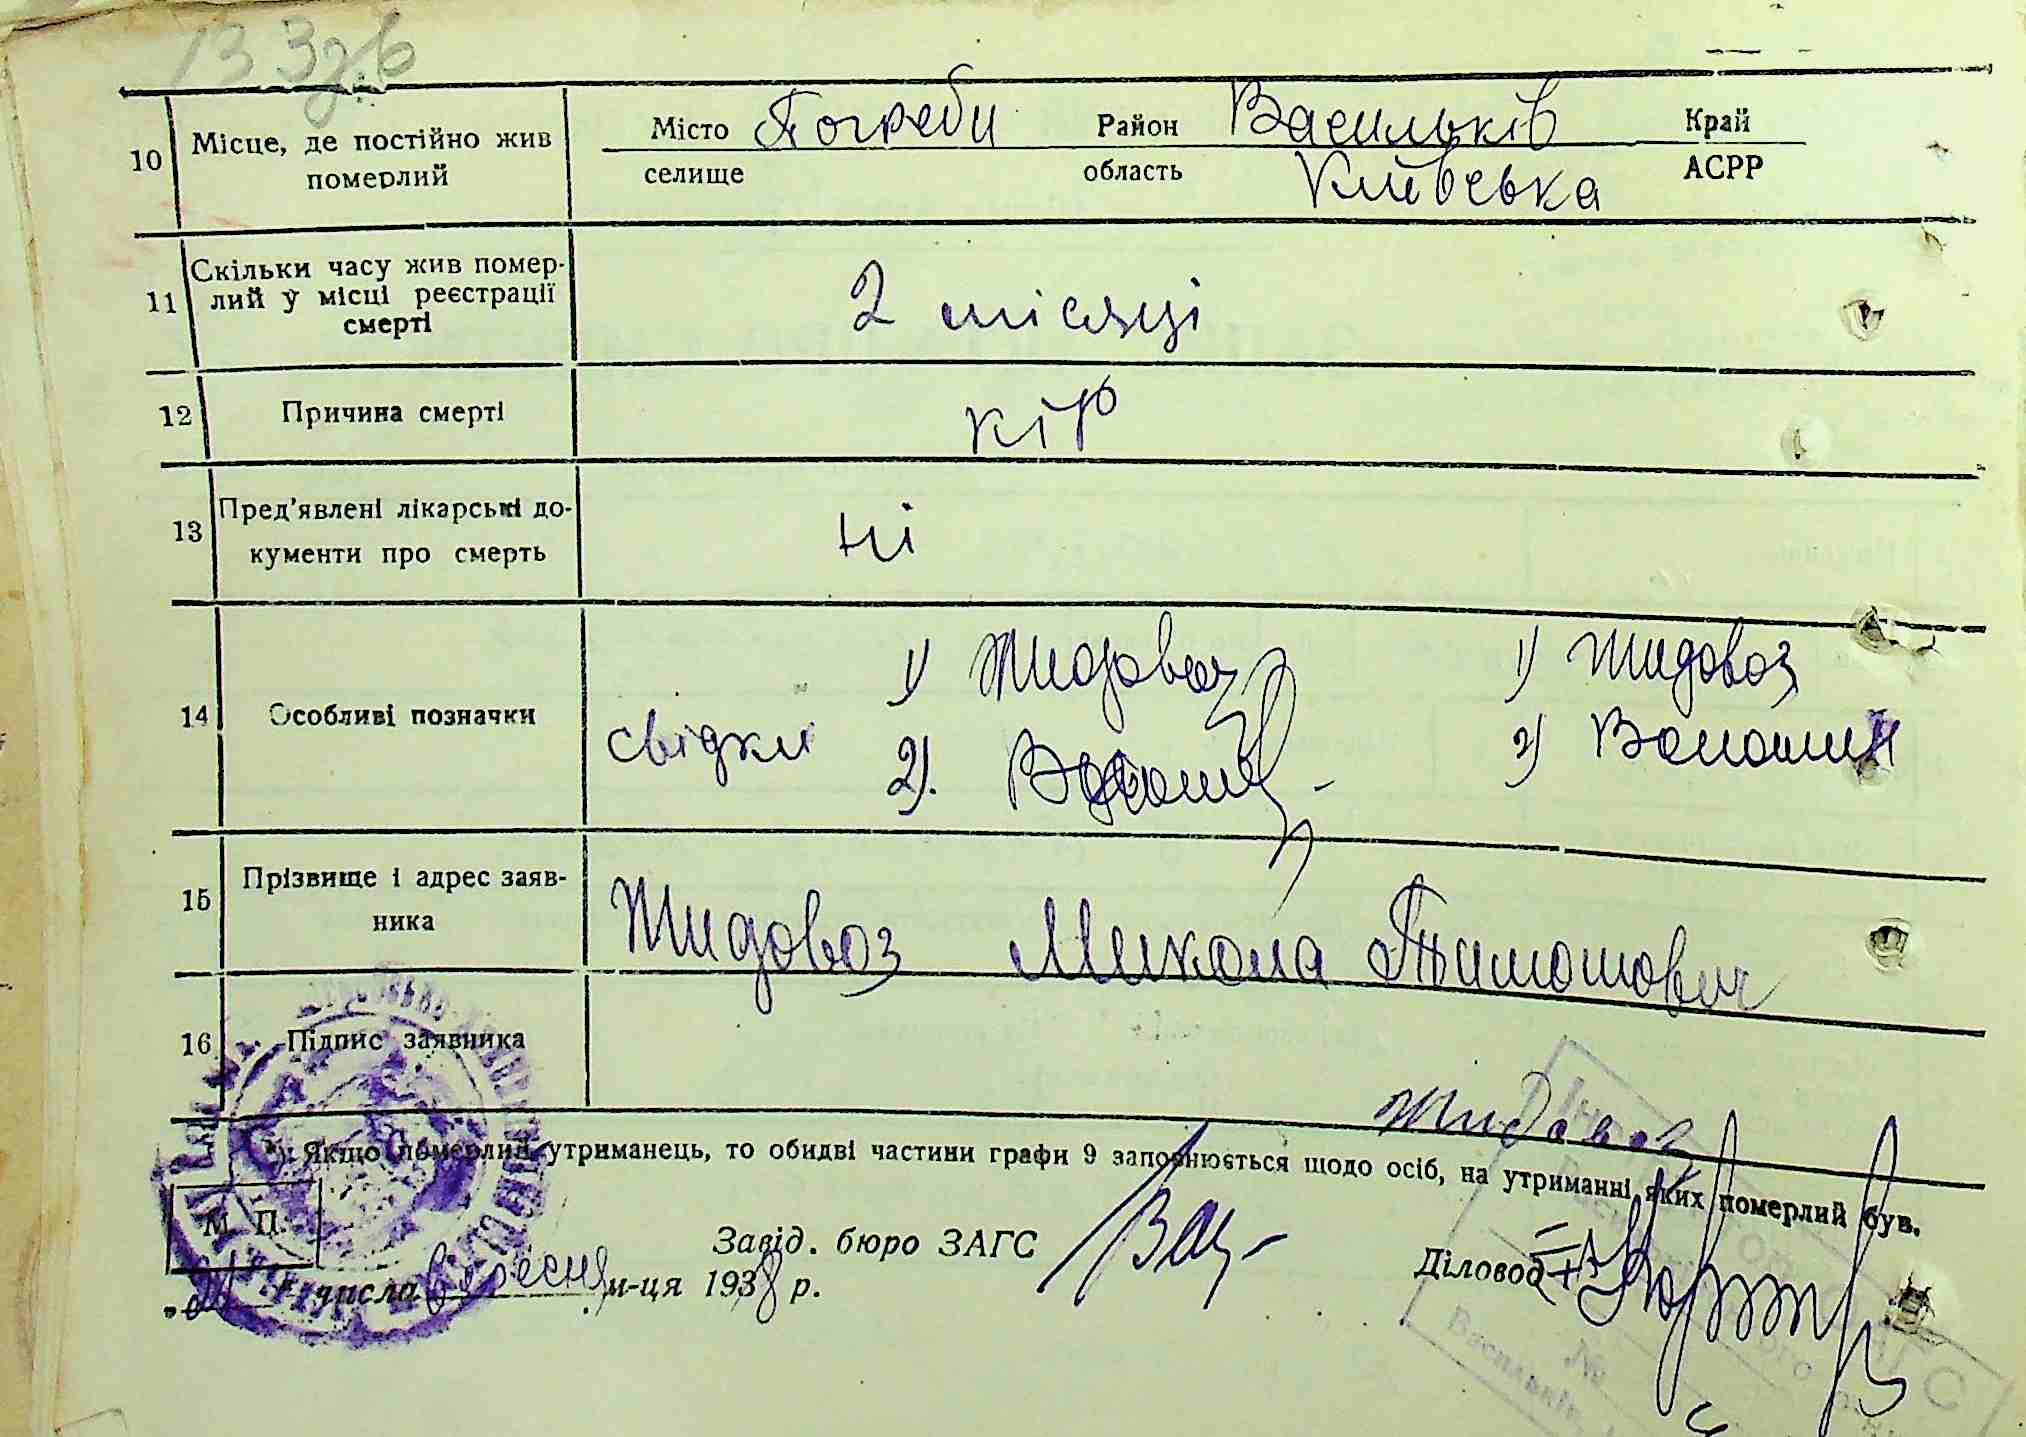 13 Зув
10 Місце, де постійно жив померлий Місто Погреби Район Васильків Край
селище область Київська АСРР
11 Скільки часу жив помер-
лий у місці реєстрації
смерті 2 місяці
12 Причина смерті кір
13 Пред'явлені лікарські до-
кументи про смерть ні
14 Особливі позначки свідки 1) Жидовоз 1) Жидовоз
2). Волошин 2) Волошин
15 Прізвище і адрес заяв-
ника Жидовоз Микола Тимошович
16 Підпис заявника
Жидовоз
*) Якщо померлий утриманець, то обидві частини графи 9 заповнюється щодо осіб, на утриманні яких померлий був.
М. П. Завід. бюро ЗАГС Діловод
числа вересня м-ця 1938 р.
ЗАГС
№
Васильків